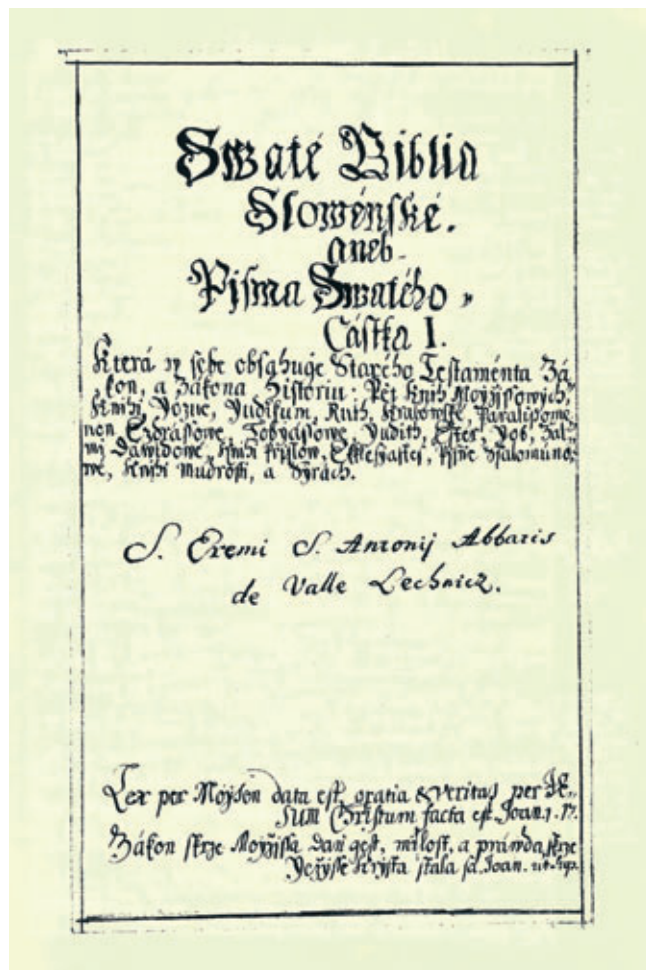 Swaté Biblia
Slowénské.
aneb
Pisma Swatého
Částka I.
Která w sebe obsahuge Starého Testaménta Zá-
kon, a Zákona Historiu: Pět Knih Moyžissowých,
Knihi, Yozue, Yudikum, Ruth, Kralowské, Paralipome-
non Ezdrassowe, Tobyassowe, Yudith, Ester, Yob, Žal-
mi Dawidowe, Knihi Prislow, Ekklesyastes, Pisne Ssalomúno-
we, Knihi Mudrosti, a Syrách.
S. Eremi S. Antonij Abbatis
de Valle Lechnicz.
Lex per Moyson data est, gratia & veritas per JE-
SUM Christum facta est. Joan. 1. 17.
Zákon skrze Moyžissa dani gest, milost, a prawda skrze
Yežisse Krysta stala sa. Joan. ut sup.